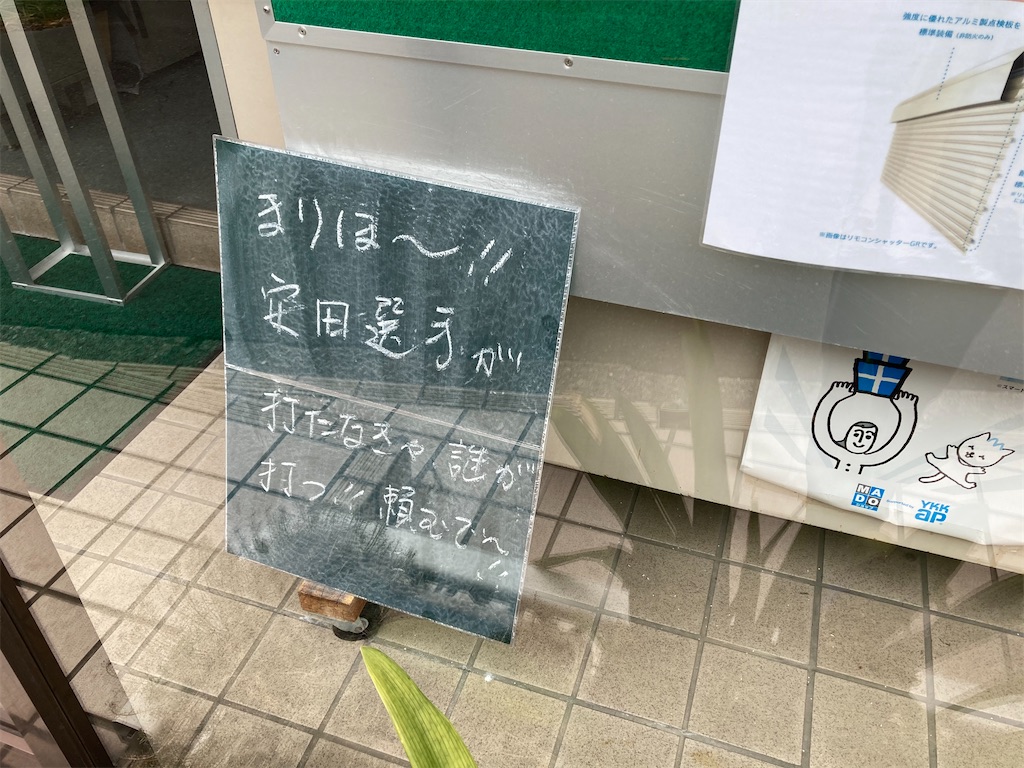 まりほ〜!!
安田選手が
打たなきゃ誰が
打つ!! 頼むでぇ!!
強度に優れたアルミ製点検板を
標準装備（非防火のみ）
※画像はリモコンシャッターGRです。
MADO
YKK
ap